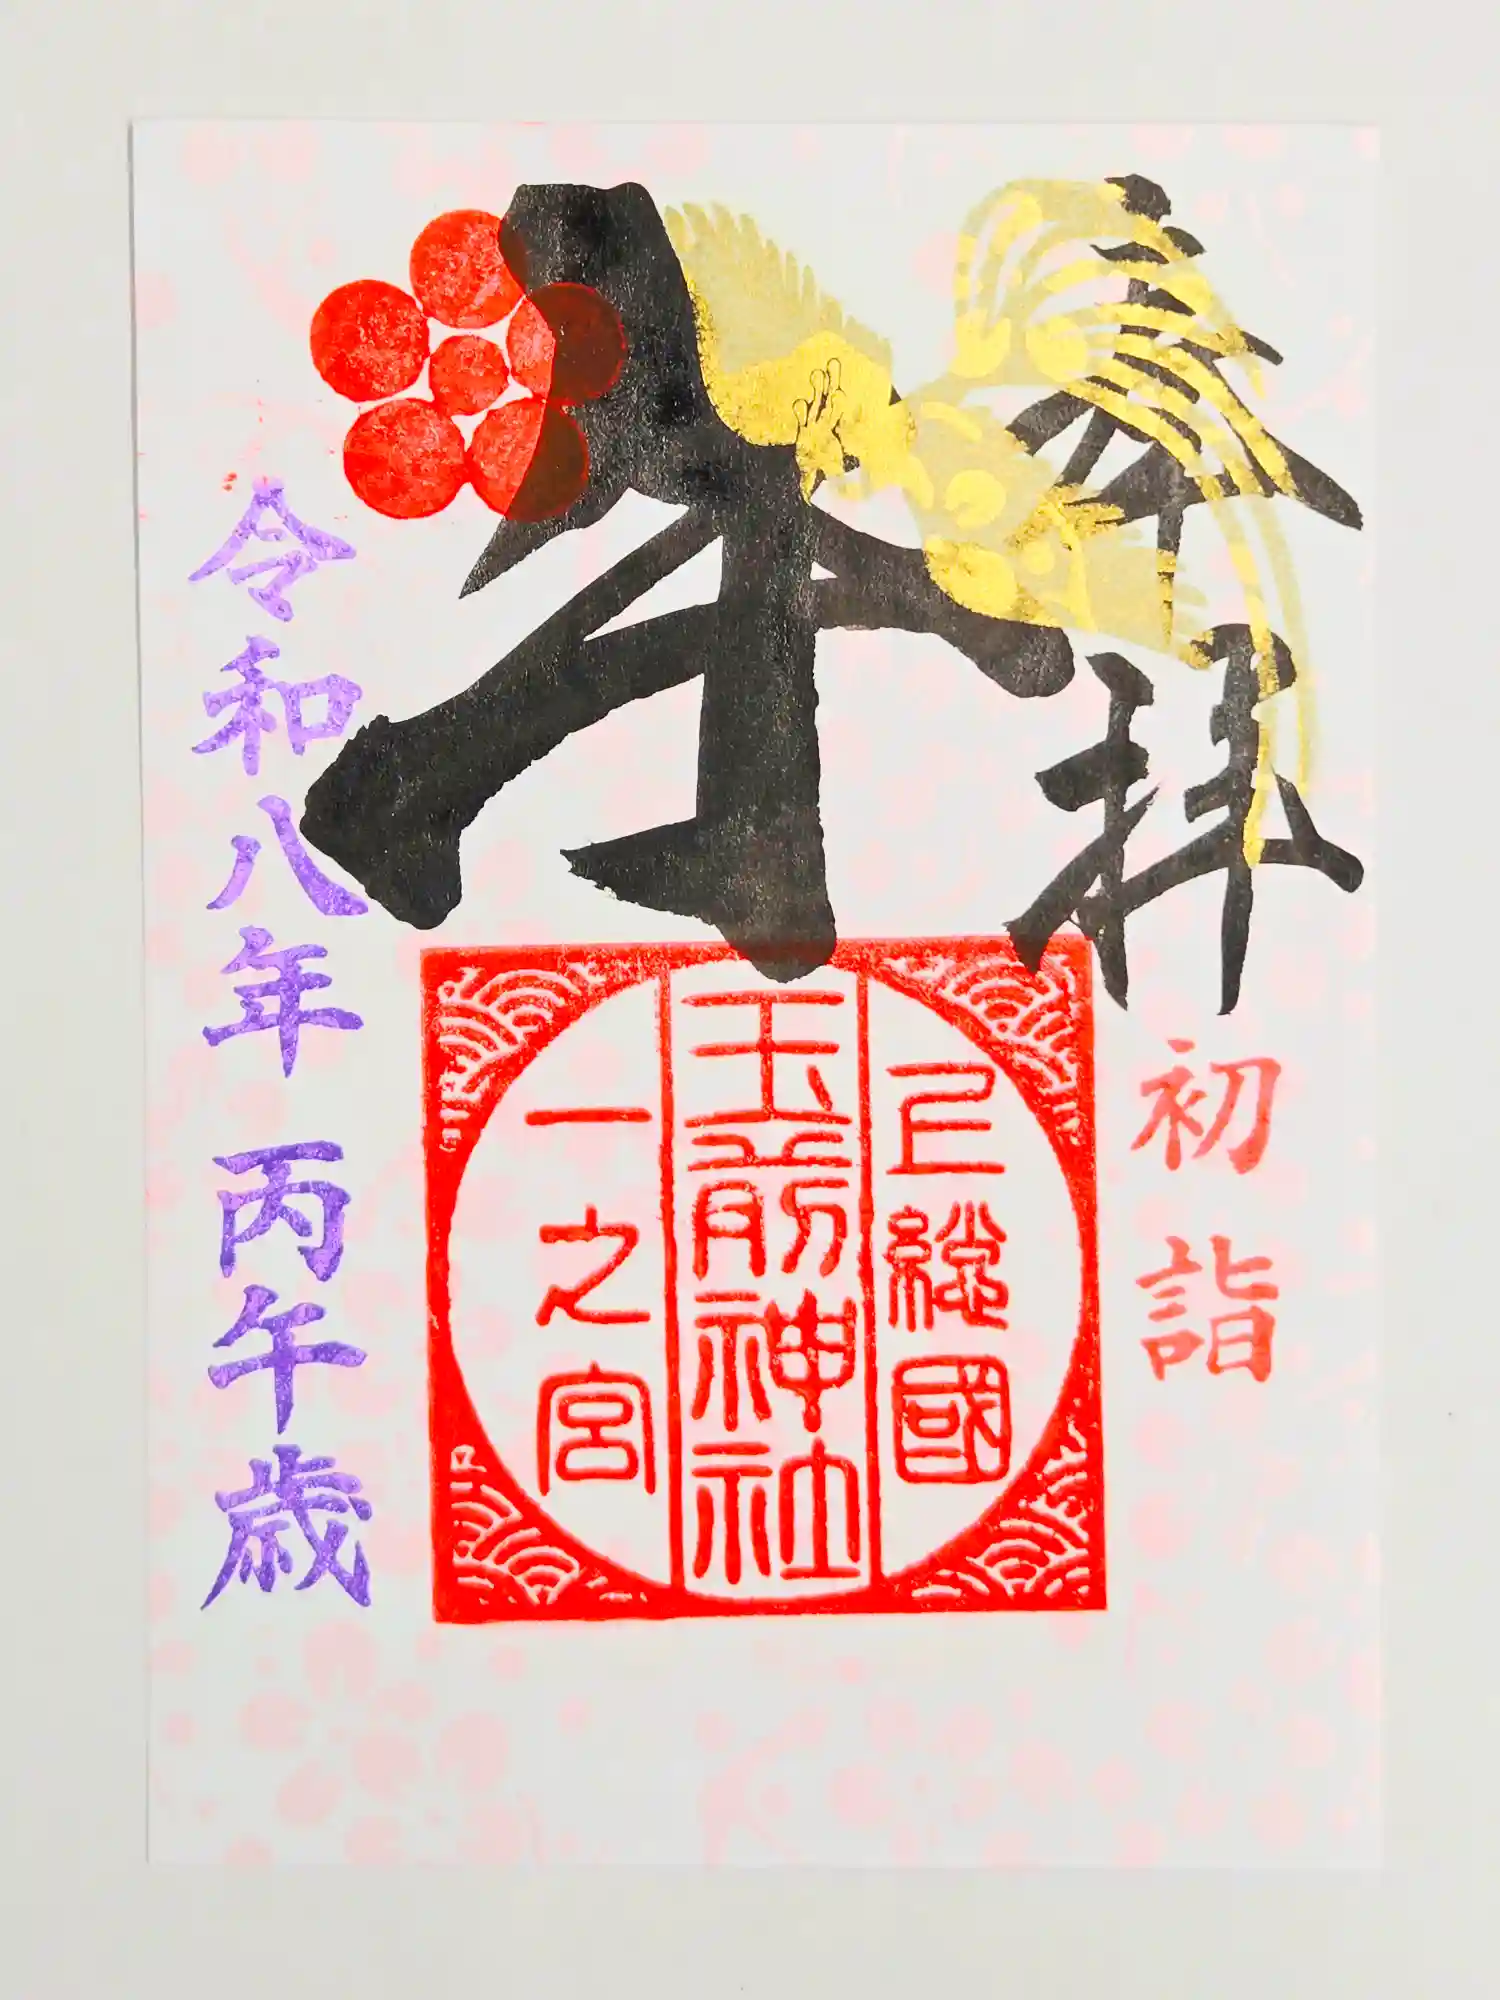 奉拝
初詣
上總國
玉前神社
一之宮
令和八年 丙午歳